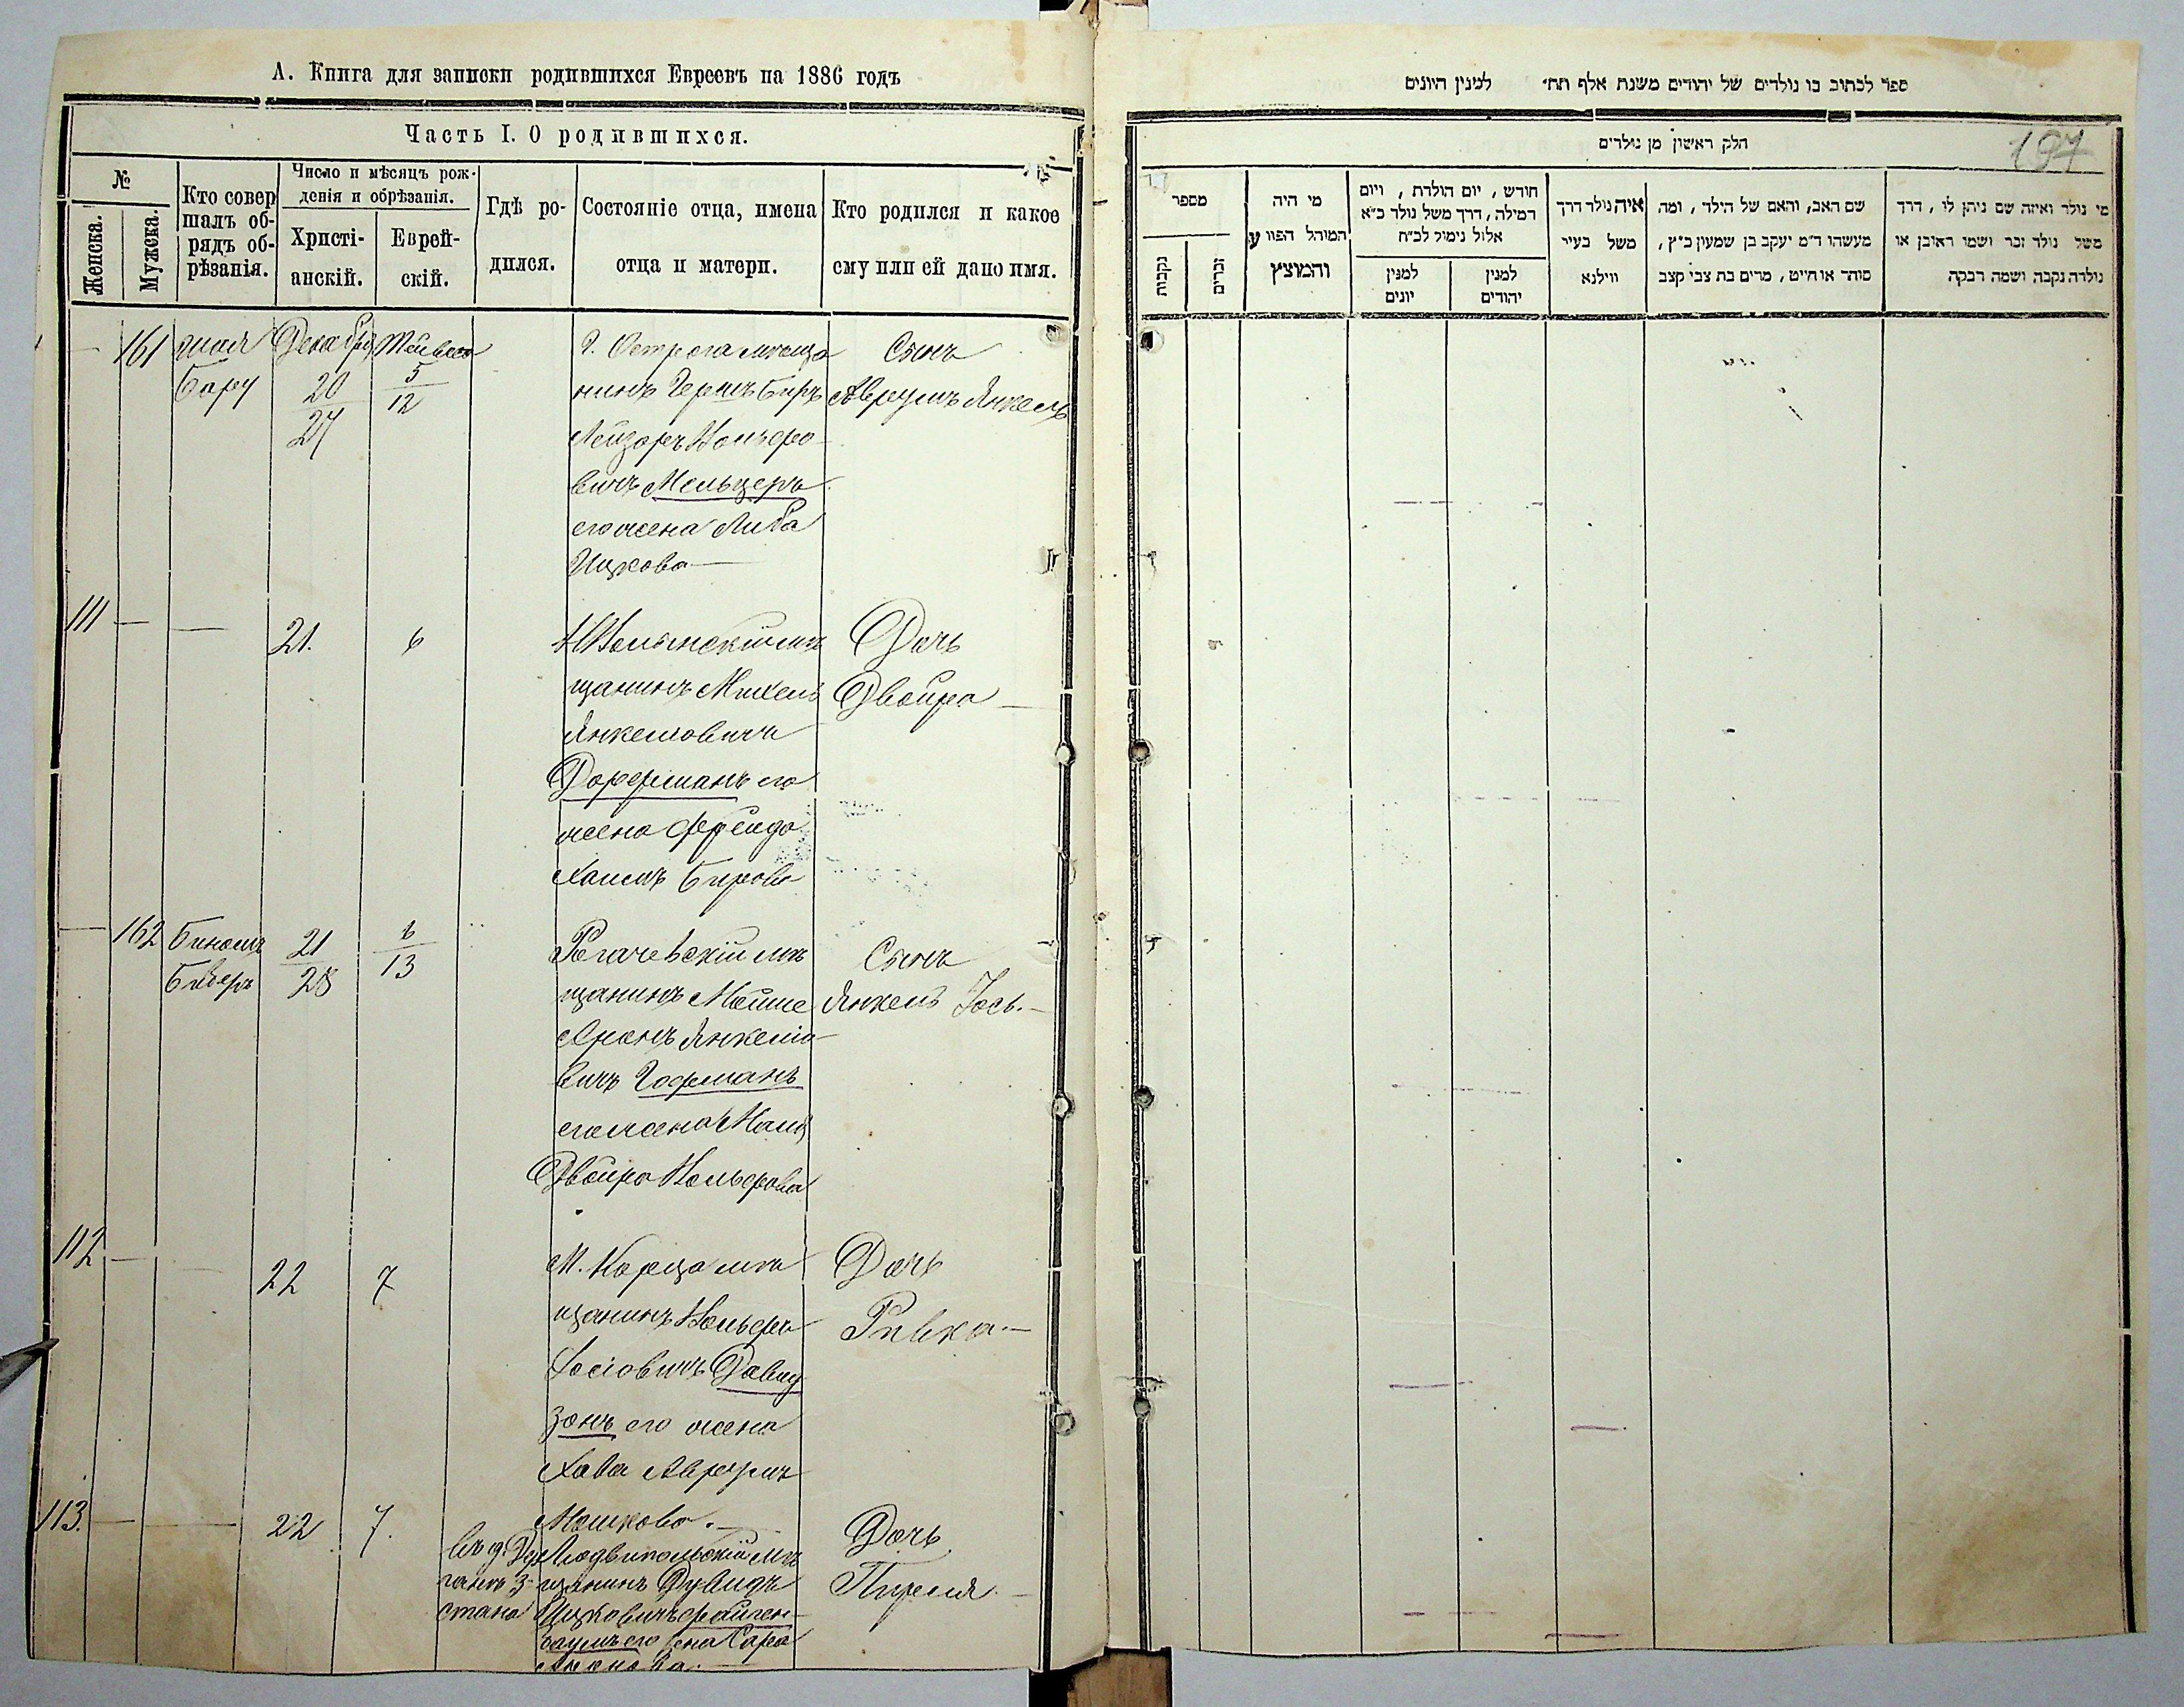 А. Книга для записки родившихся Евреевъ на 1886 годъ
Часть I. О родившихся.
№
Женска.
Мужска.
Кто совер
шалъ об-
рядъ об-
рѣзанія.
Число и мѣсяцъ рож-
денія и обрѣзанія.
Христі-
анскій.
Еврей-
скій.
Гдѣ ро-
дился.
Состояніе отца, имена
отца и матери.
Кто родился и какое
ему или ей дано имя.
161
Декабря
20
27
5
12
Г. Острога мѣща
нинъ Гершъ Беръ
Лейзоръ Вольфо
вичъ Мельцеръ
его жена Либа
Ицкова
Сынъ
Аврумъ Янкель
111
21.
6
НВолынскій мѣ
щанинъ Михель
Янкелевичъ
Дорфманъ его
жена Фрейда
Хаимъ Берова
Дочь
Двойра
162
21
28
6
13
Рогачевскій мѣ
щанинъ Мойше
Аронъ Янкеліо
вичъ Гофманъ
его жена
Двойра Вольфова
Сынъ
Янкель Іось.
112
22
7
М. Корца мѣ
щанинъ Вольфъ
Іосіовичъ Давид
зонъ его жена
Хава Аврумъ
Мошкова.
Дочь
Ривка
113.
22
7.
стана
Людвипольскій мѣ
щанинъ Дувидъ
Ицковичъ Файген
баумъ его жена Сара
Аронова.
Дочь
Пиреля.
ספר לכתוב בו נולדים של יהודים משנת אלף תת״ למנין היונים
197
חלק ראשון מן נולדים
מספר
נקבות
זכרים
מי היה
המוהל הפורע
והמוצץ
חודש, יום הולדת, ויום
המילה, דרך משל נולד כ״א
אלול נימול לכ״ח
למנין
יונים
למנין
יהודים
איה נולד דרך
משל בעיר
ווילנא
שם האב, והאם של הילד, ומה
מעשהו ד״מ יעקב בן שמעון כ״ץ,
סוחר או חייט, מרים בת צבי קצב
מי נולד ואיזה שם ניתן לו, דרך
משל נולד זכר ושמו ראובן או
נולדה נקבה ושמה רבקה